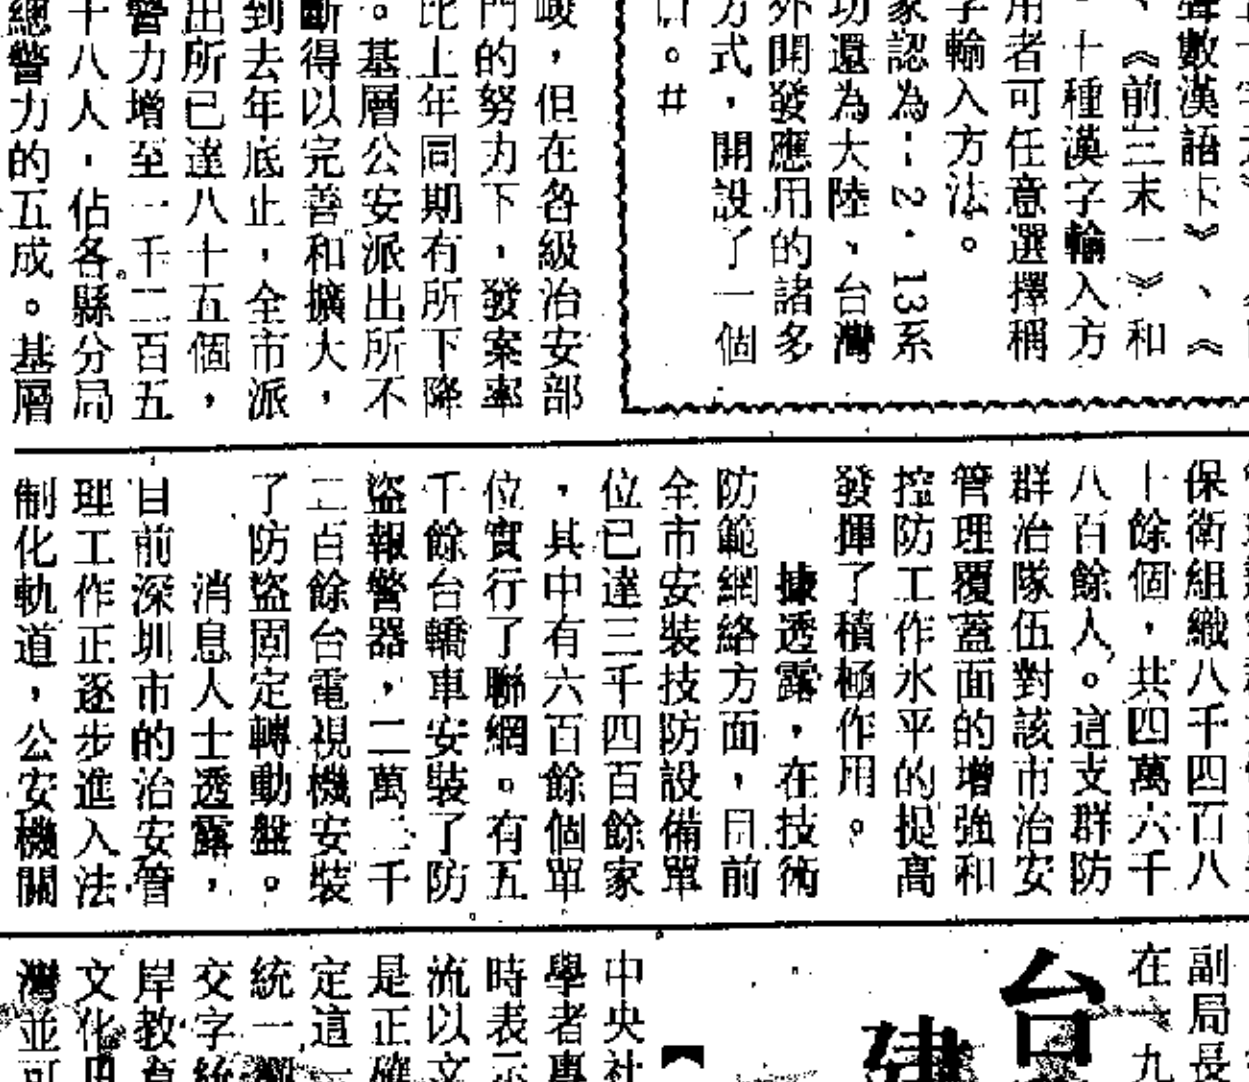 聲數漢語卞》、《
、《前三末一》和
十種漢字輸入方
用者可任意選擇稱
字輸入方法。
家認為：2．13系
功還為大陸、台灣
外開發應用的諸多
方式，開設了一個
。#
峻，但在各級治安部
門的努力下，發案率
比上年同期有所下降
。基層公安派出所不
斷得以完善和擴大，
到去年底止，全市派
出所已達八十五個，
警力增至一千二百五
十八人，佔各縣分局
總警力的五成。基層
保衛組織八千四百八
十餘個，共四萬六千
八百餘人。這支群防
群治隊伍對該市治安
管理覆蓋面的增強和
控防工作水平的提高
發揮了積極作用。
據透露，在技術
防範網絡方面，目前
全市安裝技防設備單
位已達三千四百餘家
，其中有六百餘個單
位實行了聯網。有五
千餘台轎車安裝了防
盜報警器，二萬二千
二百餘台電視機安裝
了防盜固定轉動盤。
消息人士透露，
目前深圳市的治安管
理工作正逐步進入法
制化軌道，公安機關
副局長
在一九
台
建
【
中央社
學者專
時表示
流以文
是正確
定這一
統一
交字統
岸教育
文化
灣並可